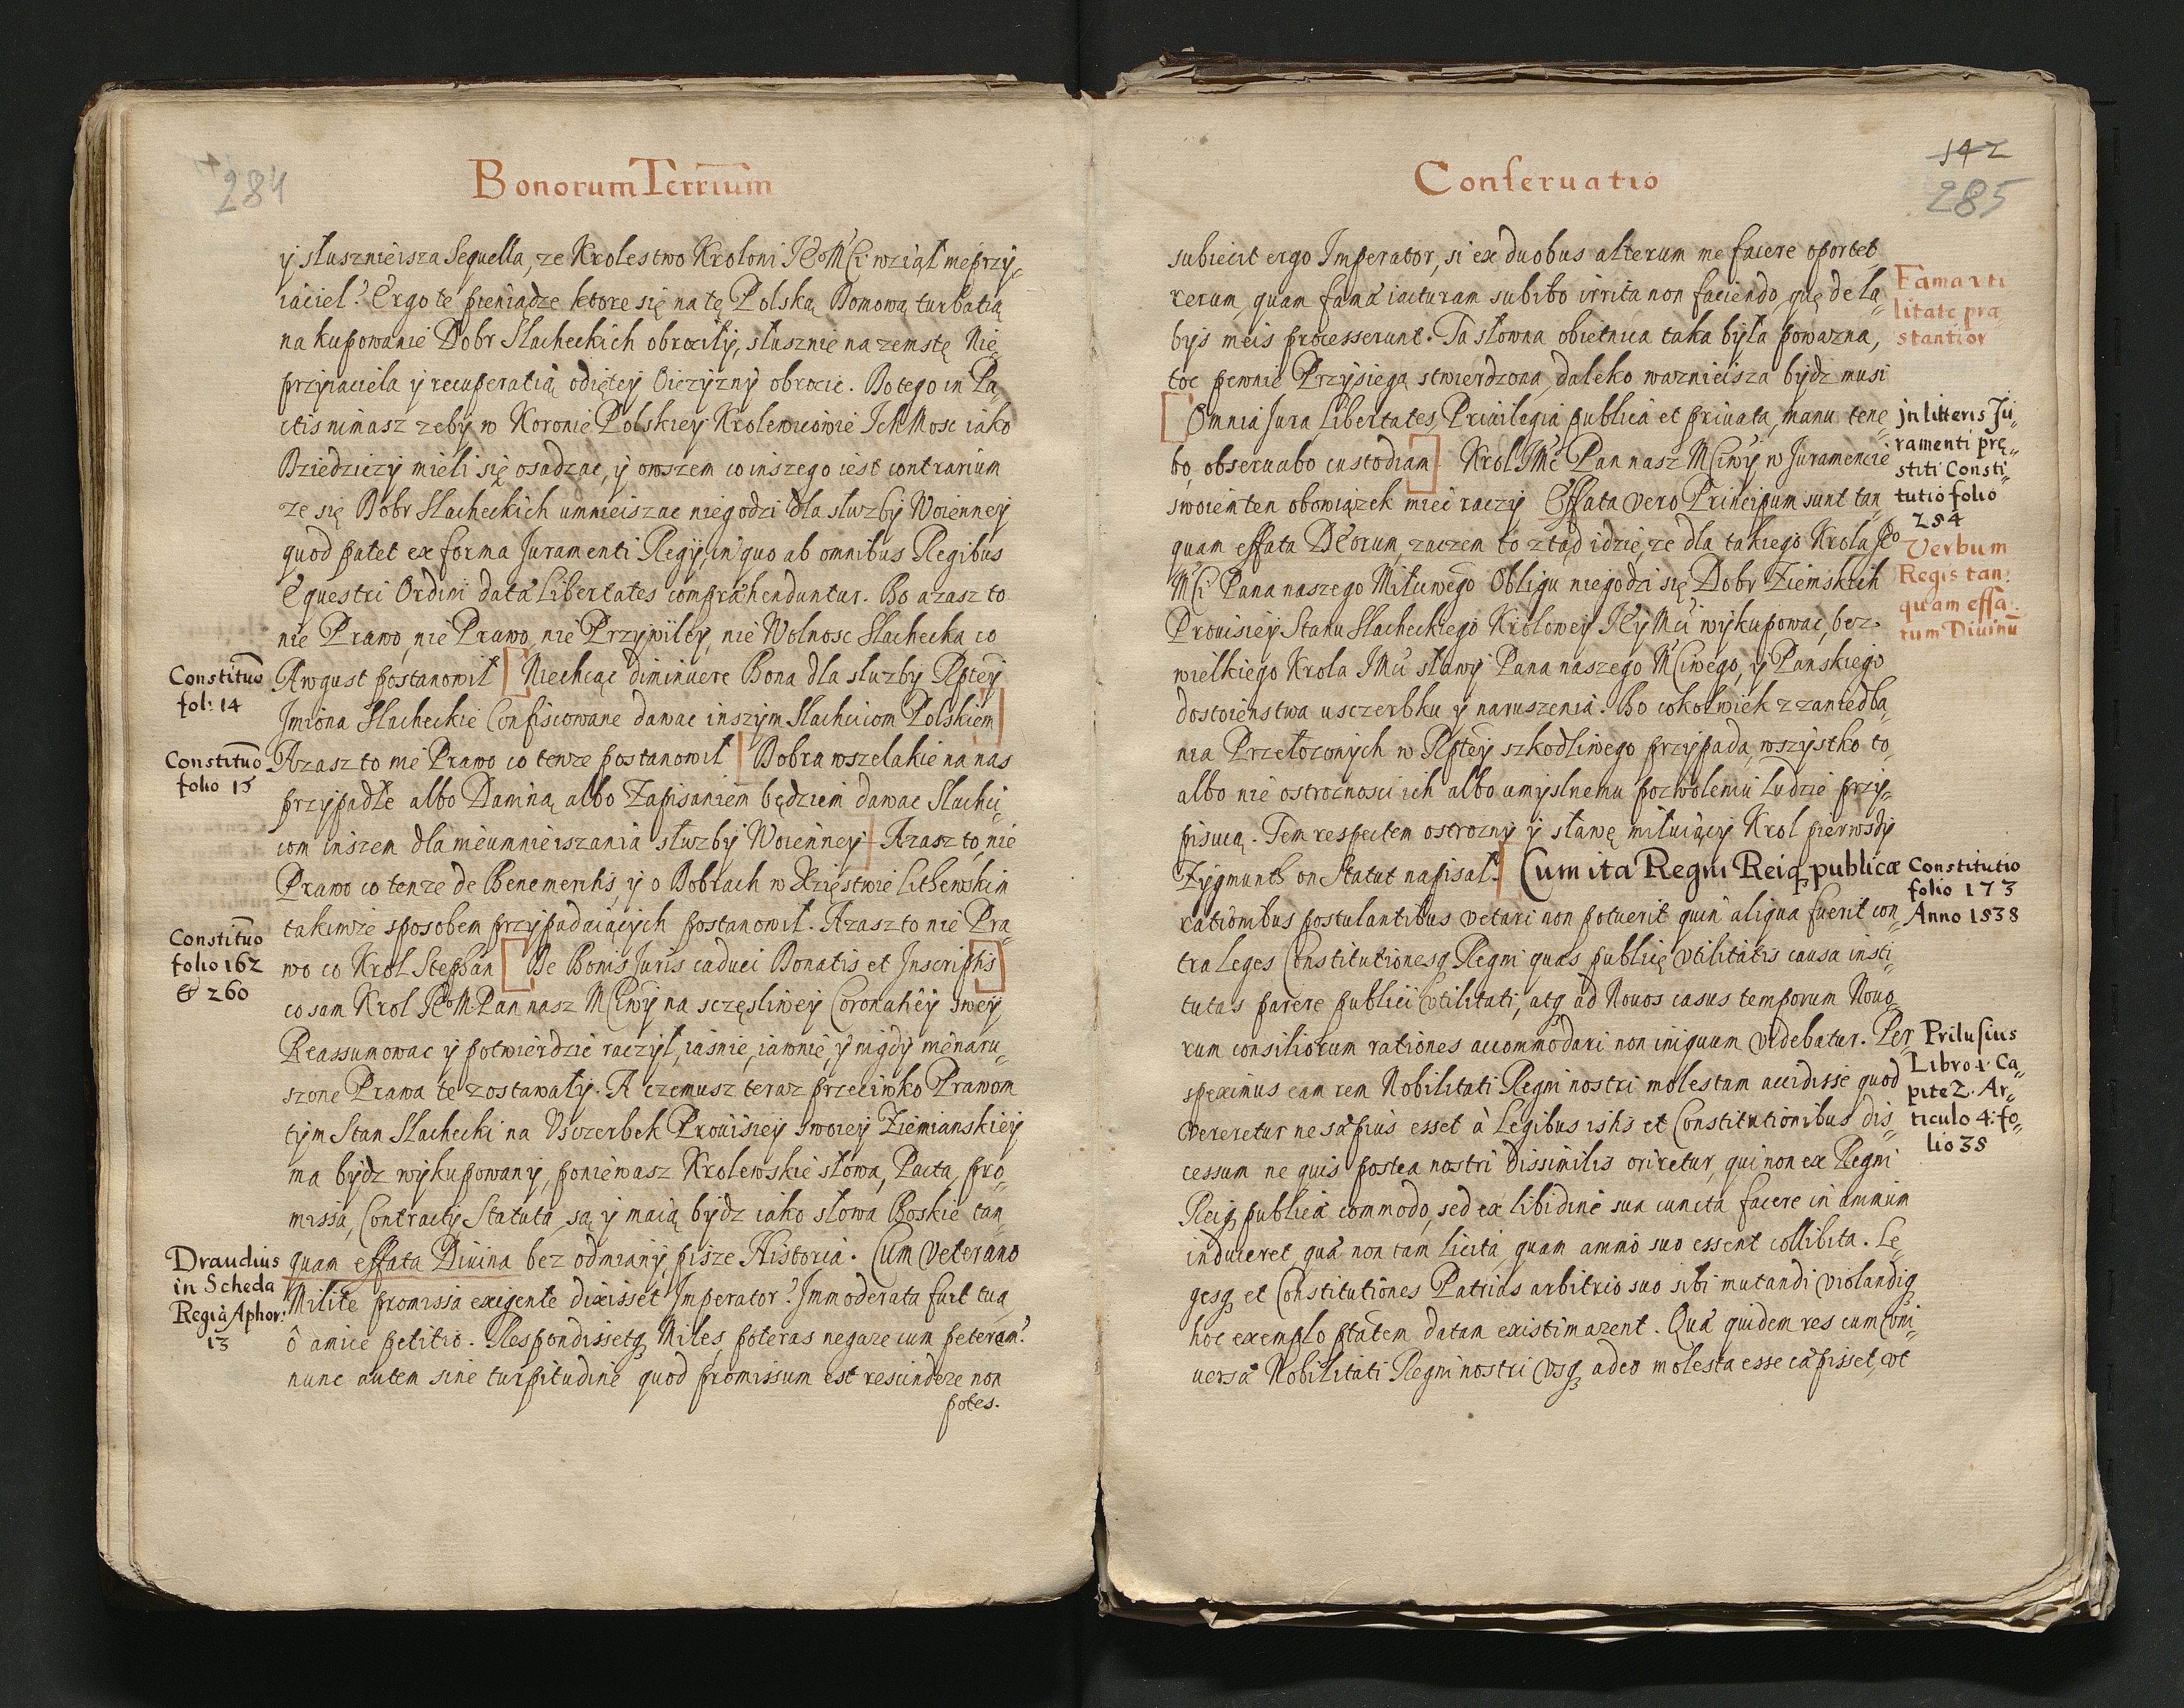 284
Bonorum Terrium
y słusznieisza Sequella, ze Krolestwo Krolowi JeoMCi wziął nieprzy„
iaciel? Ergo te pieniądze ktore się na tę Polską Domową turbatią
na kupowanie Dobr Slacheckich obrocily, słusznie na zemstę Nie„
przyiaciela y recuperatią odiętey Oiczyzny obrocic. Bo tego in Pa„
ctis nimasz zeby w Koronie Polskiey Krolewicowie IchMosc iako
Dziedziczy mieli się osadzac, y owszem co inszego iest contrarium
ze się Dobr Slacheckich umnieiszac niegodzi dla słuzby Woienney
quod patet ex forma Juramenti Regij, in quo ab omnibus Regibus
Equestri Ordini data Libertates compræhenduntur. Bo azasz to
nie Prawo, nie Prawo, nie Przywiley, nie Wolnosc Slachecka co
Constituo
fol: 14
Awgust postanowil [Niechcąc diminuere Bona dla słuzby Rptey
Jmiona Slacheckie Confiscowane dawac inszym Slachcicom Polskiem]
Constituo
folio 15
Azasz to nie Prawo co tenze postanowil | Dobra wszelakie na nas
przypadłe albo Daniną albo Zapisaniem będziem dawac Slachci„
com inszem dla nieumnieiszania słuzby Woienney | Azasz to nie
Prawo co tenze de Benemeritis y o Dobrach w Xięstwie Lithewskim
takimze sposobem przypadaiących postanowil. Azasz to nie Pra„
Constituo
folio 162
& 260
wo co Krol Stephan [De Bonis Juris caduci Donatis et Inscriptis]
co sam Krol JeoM. Pan nasz MCiwy na sczęsliwey Coronatiey swey
Reassumowac y potwierdzic raczyl, iasnie, iawnie, y nigdy nienaru„
szone Prawa te zostawaly. A czemusz teraz przeciwko Prawom
tym Stan Slachecki na Vsczerbek Prouisiey swoiey Ziemianskiey
ma bydz wykupowany, poniewasz Krolewskie słowa, Pacta, pro„
missa, Contracty Statuta, są y maią bydz iako słowa Boskie tan„
Draudius
in Scheda
Regia Aphor:
13
quam effata Diuina bez odmiany, pisze Historia. Cum Veterano
Milite promissa exigente dixisset Imperator? Immoderata fuit tua
ô amice petitio. Respondissetq Miles, poteras negare cum peteram?
nunc autem sine turpitudine quod promissum est rescindere non
potes.
142
285
Conseruatio
subiecit ergo Imperator, si ex duobus alterum me facere oportet
Fama vti
litate præ
stantior
rerum, quam famæ iacturam subibo irrita non faciendo, quę de la„
bijs meis processerunt. Ta słowna obietnica taka była powazna,
toc pewnie Przysiegą stwierdzona, daleko waznieisza bydz musi
Jn litteris Ju„
ramenti prę„
stiti Consti„
tutio folio
254
[Omnia Jura Libertates, Priuilegia publica et priuata, manu tene„
bo, obseruabo custodiam]. Krol JMC Pan nasz MCiwy w Juramencie
swoiem ten obowiązek miec raczy Effata vero Principum sunt tan„
quam effata Deorum, zaczem to ztąd idzie, ze dla takiego Krola Jeo
Verbum
Regis tan.
quam effa.
tum Diuinū
MCi Pana naszego Miłuwego Obligu niegodzi się Dobr Ziemskich
Prouisiey Stanu Slacheckiego Krolowey JEy MCi wykupowac, bez„
wielkiego Krola JMCi sławy Pana naszego MCiwego, y Panskiego
dostoienstwa usczerbku y naruszenia. Bo cokolwiek z zaniedba„
nia Przełozonych w Rptey szkodliwego przypada, wszystko to„
albo nie ostroznosci ich albo umyslnemu pozwoleniu Ludzie przy„
pisuią. Tem respectem ostrozny y sławę miłuiący Krol pierwszy
Constitutio
folio 173
Anno 1538
Zygmunth on Statut napisal. | Cum ita Regni Reiq publicæ
rationibus postulantibus vetari non potuerit quin aliqua fuerit con„
tra Leges Constitutionesq Regni quas publicę vtilitatis causa insti„
tutas parere publici vtilitati, atq ad Nouos casus temporum Nouo„
rum consiliorum rationes accommodari non iniquum videbatur. Per„
Prilusius
Libro 1. Ca„
pite 2. Ar„
ticulo 4. fo„
lio 35
speximus eam rem Nobilitati Regni nostri molestam accidisse quod
vereretur ne sæpius esset à Legibus istis et Constitutionibus dis„
cessum ne quis postea nostri dissimilis oriretur, qui non ex Regni
Reiq publicæ commodo, sed ex libidine sua cuncta facere in animum
induceret, quæ non tam licita, quam animo suo essent collibita. Le„
gesq et Constitutiones Patrias arbitrio suo sibi mutandi violandiq
hoc exemplo ptatem datam existimarent. Quæ quidem res cum Vni„
uersæ Nobilitati Regni nostri vsq adeo molesta esse cæpisset, vt